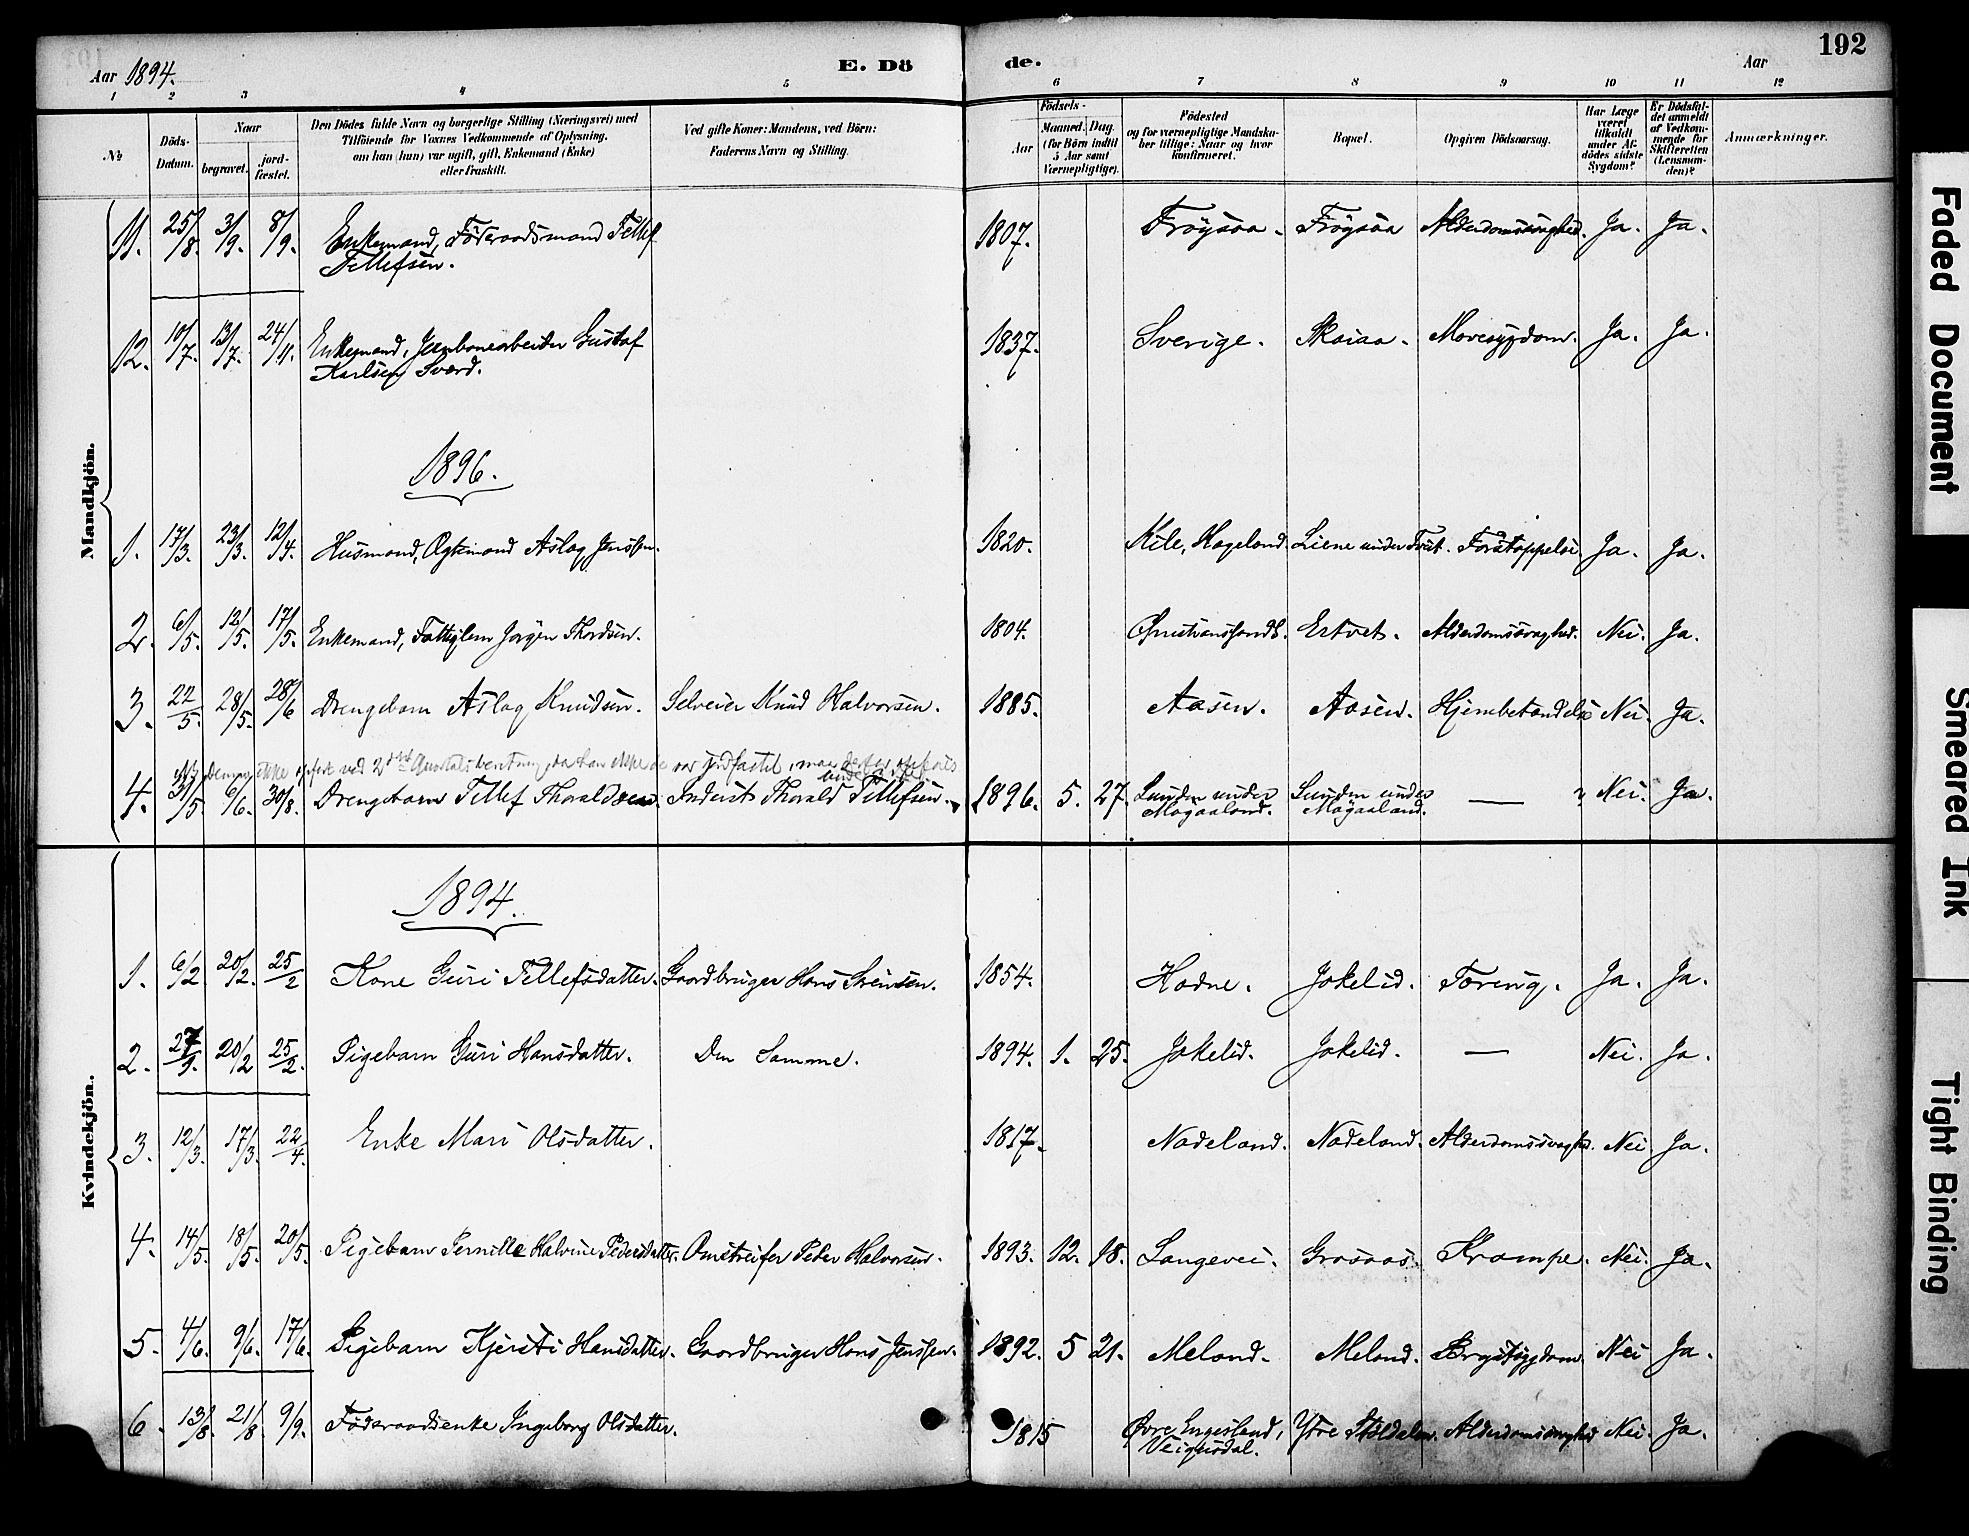 192
Aar 1894.
E. Dö
de.
Aar
1 2 3 4 5 6 7 8 9 10 11 12
№
Döds-
Datum.
Naar
begravet.
jord-
fæstet.
Den Dödes fulde Navn og borgerlige Stilling (Næringsvei) med
Tilföiende for Voxnes Vedkommende af Oplysning,
om han (hun) var ugift, gift, Enkemand (Enke)
eller fraskilt.
Ved gifte Koner: Mandens, ved Börn:
Faderens Navn og Stilling.
Födsels-
Aar
Maaned.
Dag
(for Börn indtil
5 Aar samt
Værnepligtige).
Födested
og for værnepligtige Mandska-
ber tillige: Naar og hvor
konfirmeret.
Bopæl.
Opgiven Dödsaarsag.
Har Læge
været
tilkaldt
under Af-
dödes sidste
Sygdom?
Er Dödsfal-
det anmeldt
af Vedkom-
mende for
Skifteretten
(Lensman-
den)?
Anmærkninger.
Mandkjön.
11. 25/8. 3/9. 8/9. Enkemand, Föderaadsmand Tellef 1807. Fröysaa. Fröysaa Alderdomssvaghed. Ja. Ja.
Tellefsen.
12. 10/7. 13/7. 24/11. Enkemand, Jernbanearbeider Gustaf 1837. Sverige. Skaiaa. Mavesygdom. Ja. Ja.
Karlsen Sværd.
1896.
1. 17/3. 23/3. 12/4. Husmand, Ægtemand Aslag Jenssen. 1820. Kile, Hægeland. Liene under Tveit. Forstoppelse Ja. Ja.
2. 6/5. 12/5. 17/5. Enkemand, Fattiglem Jørgen Thordsen. 1804. Christianssand. Ertvet. Alderdomssvaghed. Nei. Ja.
3. 22/5. 28/5. 28/6 Drengebarn Aslag Knudsen. Selveier Knud Halvorsen. 1885. Aasen. Aasen. Hjernebetændelse Nei. Ja.
ikke opført ved 2det Quartals beretning, da han ikke var jordfæstet, maa derfor opføres
under
4. 31/5. 6/6. 30/8. Drengebarn Tellef Thoraldsen. Inderst Thorald Tellefsen. 1896. 5. 27. Lunden under Lunden under — Nei. Ja.
Mögaaland. Mögaaland.
Kvindekjön.
1894.
1. 6/2. 20/2. 25/2 Kone Guri Tellefsdatter. Gaardbruger Hans Svensen. 1854. Hodne. Jokelid. Tæring. Ja. Ja.
2. 27/9. 20/2 25/2. Pigebarn Guri Hansdatter. Den Samme. 1894. 1. 25. Jokelid. Jokelid. — Nei. Ja.
3. 12/3. 17/3. 22/4. Enke Mari Olsdatter. 1817. Nadeland. Nadeland. Alderdomssvaghed. Nei Ja.
4. 14/5. 18/5. 20/5. Pigebarn Pernille Halvine Pedersdatter. Omstreifer Peder Halvorsen. 1893. 12. 18. Langevei. Graasaas. Krampe. Nei. Ja.
5. 4/6. 9/6. 17/6. Pigebarn Kjersti Hansdatter. Gaardbruger Hans Jenssen. 1892. 5 21. Meland. Meland. Brystsygdom. Nei Ja.
6. 13/8. 21/8 9/9. Föderaadsenke Ingeborg Olsdatter. 1815 Øvre Engesland, Ytre Støldalen. Alderdomssvaghed Nei. Ja.
Veigusdal.
Faded Document
Smeared Ink
Tight Binding